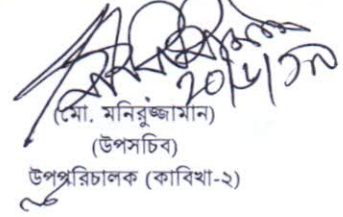 (মো. মনিরুজ্জামান)
(উপসচিব)
উপপরিচালক (কাবিখা-২)